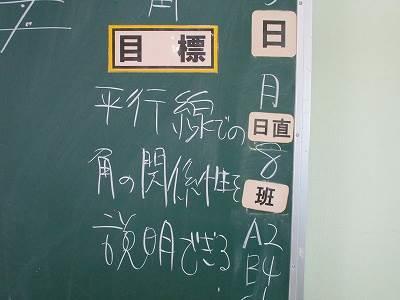 目標
平行線での
角の関係性を
説明できる
日
月
日直
8
班
A2
B4